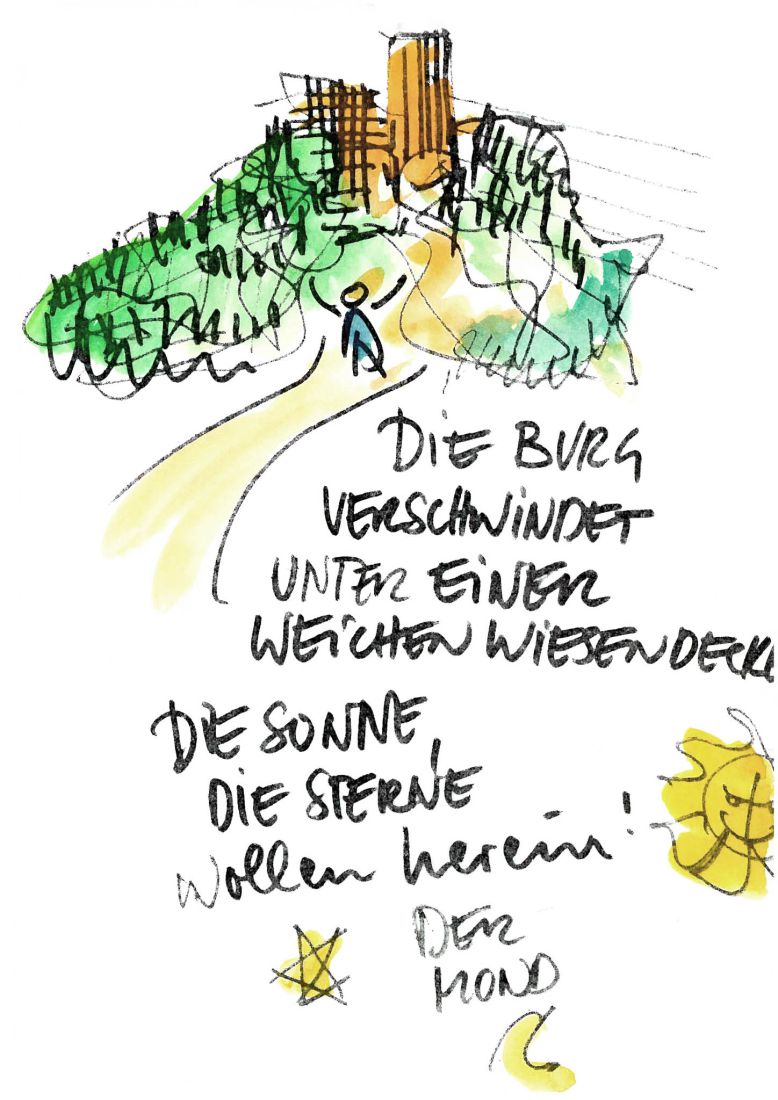 DIE BURG
VERSCHWINDET
UNTER EINER
WEICHEN WIESENDECKE
DIE SONNE,
DIE STERNE
wollen herein!
DER
MOND